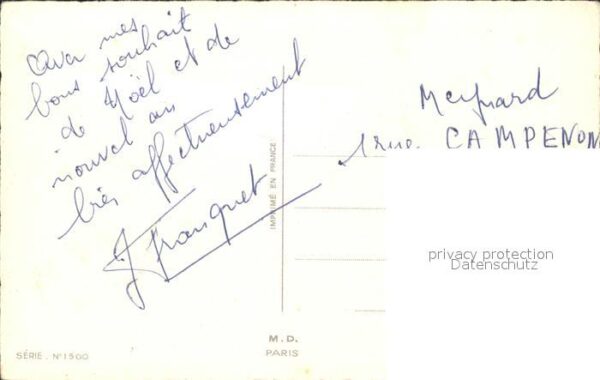 Avec mes
bons souhait
de Noël et de
nouvel an
bien affectueusement
J Franquet
IMPRIMÉ EN FRANCE
Meynard
1 rue. CAMPENON
privacy protection
Datenschutz
M.D.
PARIS
SÉRIE. N° 1500